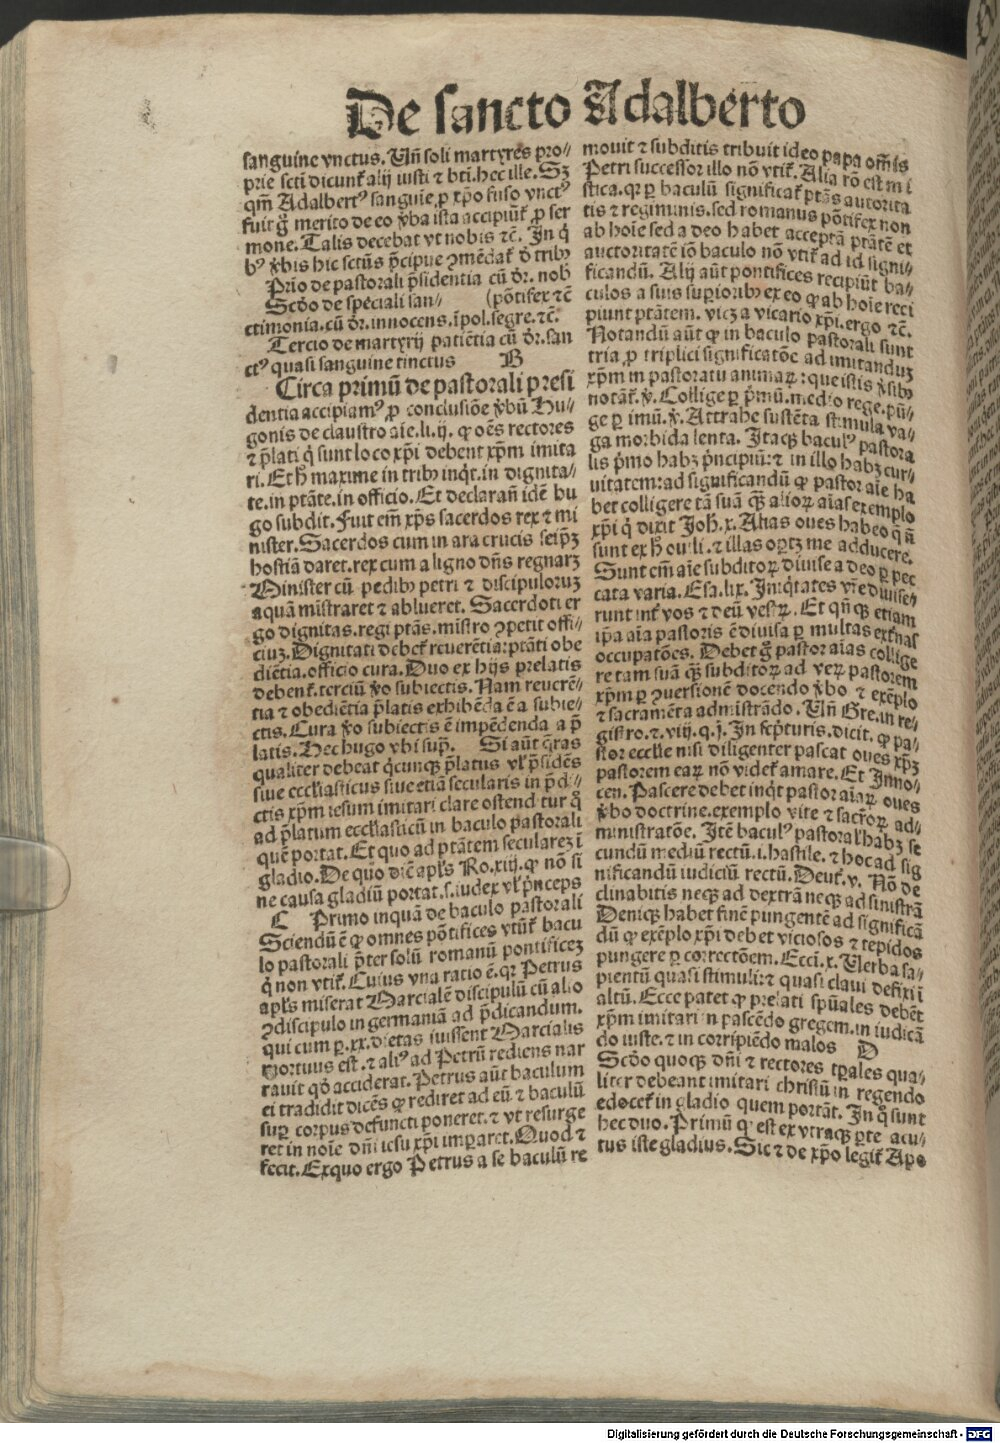 De sancto Adalberto
sanguine vnctus. Uñ soli martyres pro⸗
prie scti dicunt᷑ alij iusti ⁊ bti. hec ille. Sꝫ
qm̄ Adalbertꝰ sanguīe ꝓ xp̄o fuso vnctꝰ
fuit gͦ merito de eo v̓ba ista accipiūt᷑ ꝓ ser
mone. Talis decebat vt nobis ⁊c̄. In q̇
bꝰ v̓bis hic sctūs p̄cipue ꝯmēdat᷑ d̓ tribꝰ
Prīo de pastorali p̄sidentia cū dr̄. nob̓
Scd̓o de speciali san⸗ (pōtifex ⁊c̄
ctimonia. cū dr̄. innocens. īpol. segre. ⁊c̄.
Tercio de martyrij patiētia cū dr̄. san
ctꝰ quasi sanguine tinctus B
Circa primū de pastorali presi
dentia accipiamꝰ ꝓ conclusiōe v̓bū Hu⸗
gonis de claustro aīe. li. ij. ꝙ oēs rectores
⁊ p̄lati q̇ sunt loco xp̄i debent xp̄m imita
ri. Et h̓ maxime in tribꝰ inq̇t. in dignita⸗
te. in ptāte. in officio. Et declarañ idē hu
go subdit. Fuit em̄ xp̄s sacerdos rex ⁊ mi
nister. Sacerdos cum in ara crucis seip̄ꝫ
hostiā daret. rex cum a ligno dn̄s regnarꝫ
Minister cū pedibꝰ petri ⁊ discipuloruꝫ
aquā mīstraret ⁊ ablueret. Sacerdoti er
go dignitas. regi ptās. mīstro ꝯpetit offi⸗
ciuꝫ. Dignitati debet᷑ reuerētia: ptāti obe
diētia. officio cura. Duo ex hijs prelatis
debent᷑. terciū v̓o subiectis. Nam reuerē⸗
tia ⁊ obediētia p̄latis exhibēda ē a subie⸗
ctis. Cura v̓o subiectis ē impēdenda a p̄
latis. Hec hugo vbi sup̄. Si aūt q̄ras
qualiter debeat q̇cunqꝫ p̄latus vl̓ p̄sidēs
siue ecclīasticus siue etiā secularis in p̄di⸗
ctis xp̄m iesum imitari clare ostenditur qͦ
ad p̄latum ecclīasticū in baculo pastorali
quē portat. Et quo ad ptātem seculareꝫ ī
gladio. De quo dic̄ apl̓s Ro. xiij. ꝙ nō si
ne causa gladiū portat. s. iudex vl̓ p̄nceps
C Primo inquā de baculo pastorali
Sciendū ē ꝙ omnes pōtifices vtūt᷑ bacu
lo pastorali p̄ter solū romanū pontificeꝫ
q̇ non vtit᷑. Cuius vna ratio ē. qꝛ Petrus
apl̓s miserat Marcialē discipulū cū alio
ꝯdiscipulo in germaniā ad p̄dicandum.
qui cum ꝑ. xx. dietas iuissent Marcialis
mortuus est. ⁊ aliꝰ ad Petrū rediens nar
rauit qd̓ acciderat. Petrus aūt baculum
ei tradidit dicēs ꝙ rediret ad eū ⁊ baculū
suꝑ corpus defuncti poneret. ⁊ vt resurge
ret in noīe dn̄i iesu xp̄i imꝑaret. Quod ⁊
fecit. Ex quo ergo Petrus a se baculū re
mouit ⁊ subditis tribuit ideo papa om̄is
Petri successor illo nō vtit᷑. Alia rō est mi
stica. qꝛ ꝑ baculū significat᷑ ptās autorita
tis ⁊ regiminis. sed romanus pōtifex non
ab hoīe sed a deo habet acceptā ptātē et
auctoritatē iō baculo nō vtit᷑ ad id signi⸗
ficandū. Alij aūt pontifices recipiūt ba⸗
culos a suis suꝑioribꝰ ex eo ꝙ ab hoīe reci
piunt ptātem. vicꝫ a vicario xp̄i. ergo ⁊c̄.
Notandū aūt ꝙ in baculo pastorali sunt
tria ꝓ triplici significatōe ad imitanduꝫ
xp̄m in pastoratu animaꝝ: que istis v̓sibꝰ
notāt᷑. v̓. Collige ꝑ p̄mū. medio rege. pū⸗
ge ꝑ imū. v̓. Attrahe sustēta stimula va⸗
ga morbida lenta. Itaqꝫ baculꝰ pastora
lis p̄mo habꝫ p̄ncipiū: ⁊ in illo habꝫ cur⸗
uitatem: ad significandū ꝙ pastor aīe ha
bet colligere tā suā qꝫ alioꝝ aīas exemplo
xp̄i q̇ dixit Joh̄. x. Alias oues habeo q̄ ñ
sunt ex h̓ ouili. ⁊ illas oꝑtꝫ me adducere.
Sunt em̄ aīe subditoꝝ diuise a deo ꝑ pec
cata varia. Esa. lix. Iniq̇tates vr̄e diuise⸗
runt int᷑ vos ⁊ deū vestꝝ. Et qn̄qꝫ etiam
ip̄a aīa pastoris ē diuisa ꝑ multas ext᷑nas
occupatōes. Debet gͦ pastor aīas collige
re tam suā qꝫ subditoꝝ ad veꝝ pastorem
xp̄m ꝑ ꝯuersionē docendo v̓bo ⁊ exēplo
⁊ sacramēta admīstrādo. Uñ Gre. in re⸗
gistro. ⁊. viij. q. j. In sc̓pturis. dicit. ꝙ pa⸗
stor eccl̄ie nisi diligenter pascat oues xp̄ꝫ
pastorem eaꝝ nō videt᷑ amare. Et Inno⸗
cen. Pascere debet inq̇t pastor aīaꝝ oues
v̓bo doctrine. exemplo vite ⁊ sacr̄oꝝ ad⸗
ministratōe. Itē baculꝰ pastoral̓ habꝫ se
cundū mediū rectū. i. hastile. ⁊ hoc ad sig
nificandū iudiciū rectū. Deut᷑. v. Nō de
clinabitis neqꝫ ad dextrā neqꝫ ad sinistrā
Deniqꝫ habet finē pungentē ad significā
dū ꝙ exēplo xp̄i debet viciosos ⁊ tepidos
pungere ꝑ correctōem. Ecci. x. Uerba sa⸗
pientū quasi stimuli: ⁊ quasi claui defixi ī
altū. Ecce patet ꝙ prelati spūales debēt
xp̄m imitari in pascēdo gregem. in iudicā
do iuste. ⁊ in corripiēdo malos D
Scd̓o quoqꝫ dn̄i ⁊ rectores tꝑales qua⸗
liter debeant imitari christū in regendo
edocet᷑ in gladio quem portāt. In qͦ sunt
hec duo. Primū qꝛ est ex vtraqꝫ ꝑte acu⸗
tus iste gladius. Sic ⁊ de xp̄o legit᷑ Apo
Digitalisierung gefördert durch die Deutsche Forschungsgemeinschaft - DFG